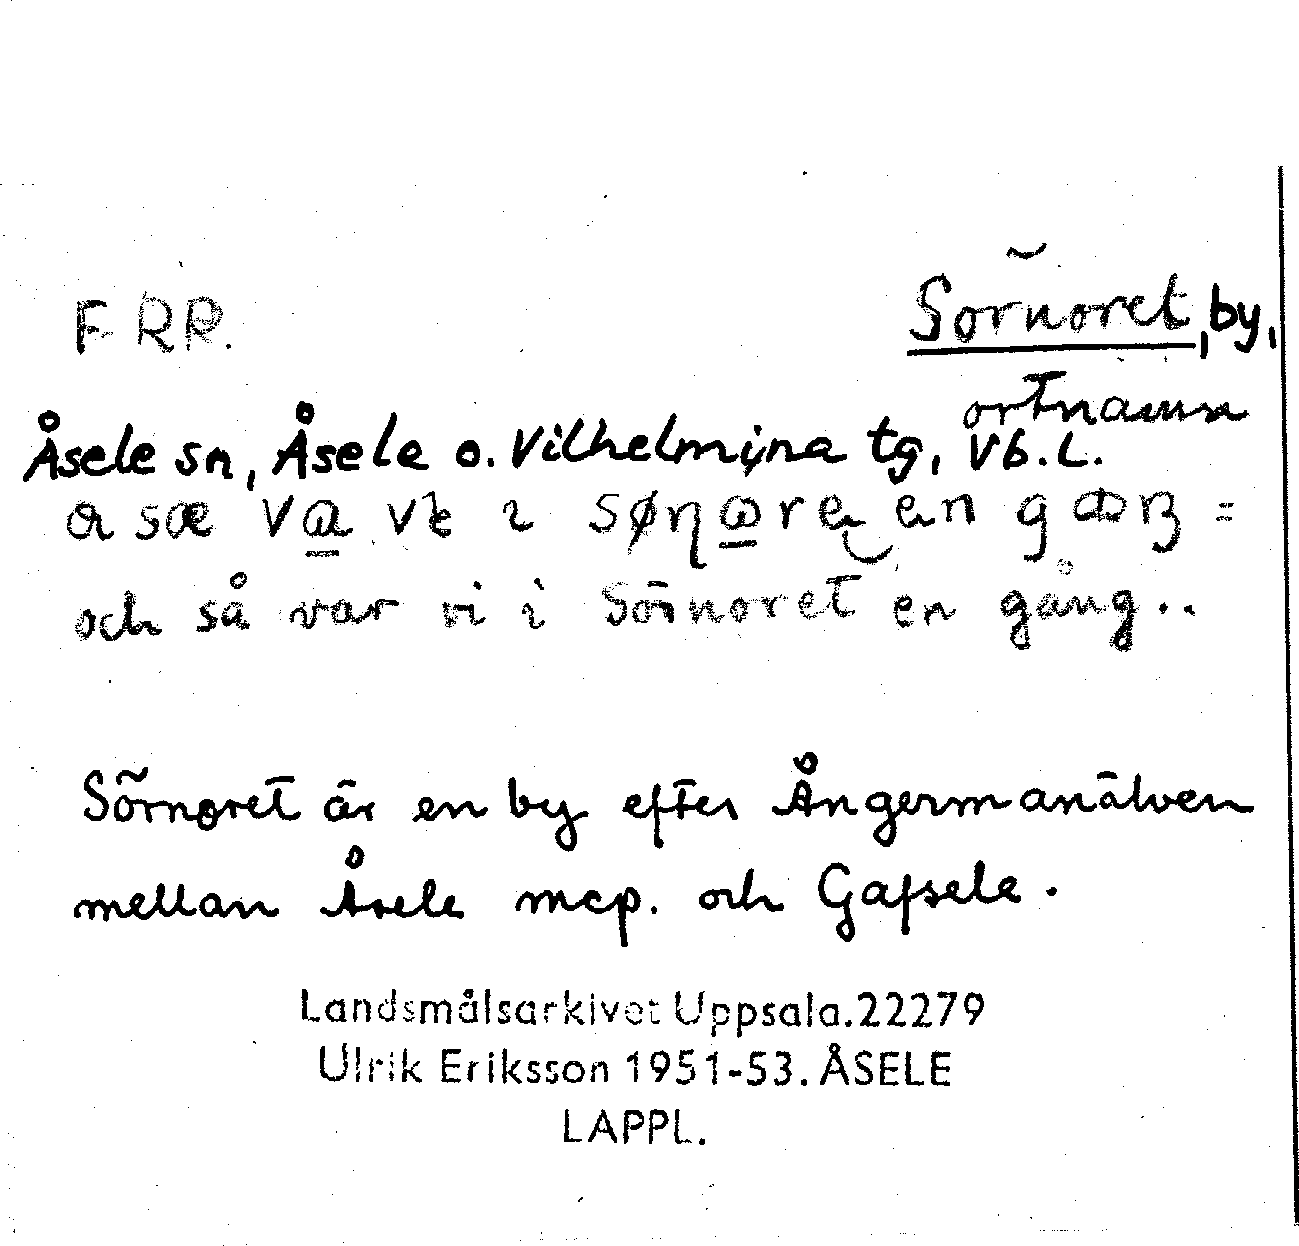 FRP.
Sörnoret, by,
ortnamn
Åsele sn, Åsele o. Vilhelmina tg, Vb. L.
en
och så var vi i Sörnoret en gång..
Sörnoret är en by efter Ångermanälven
mellan Åsele mcp. och Gafsele.
Landsmålsarkivet Uppsala.22279
Ulrik Eriksson 1951-53. ÅSELE
LAPPL.